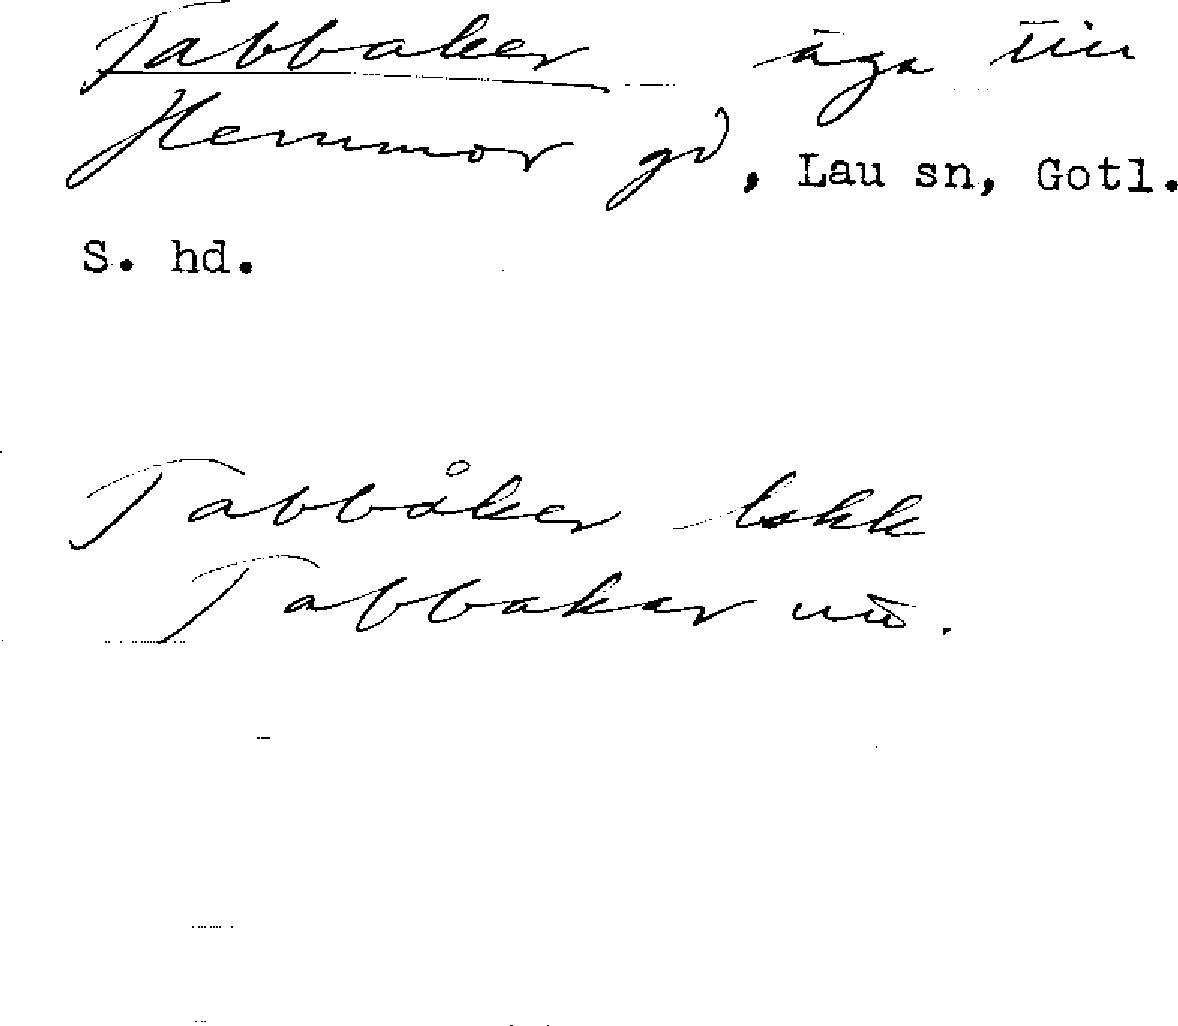 Tabbaker äga till
Hemmor gd, Lau sn, Gotl.
S. hd.
Tabbåker lokk
Tabbakar nu.